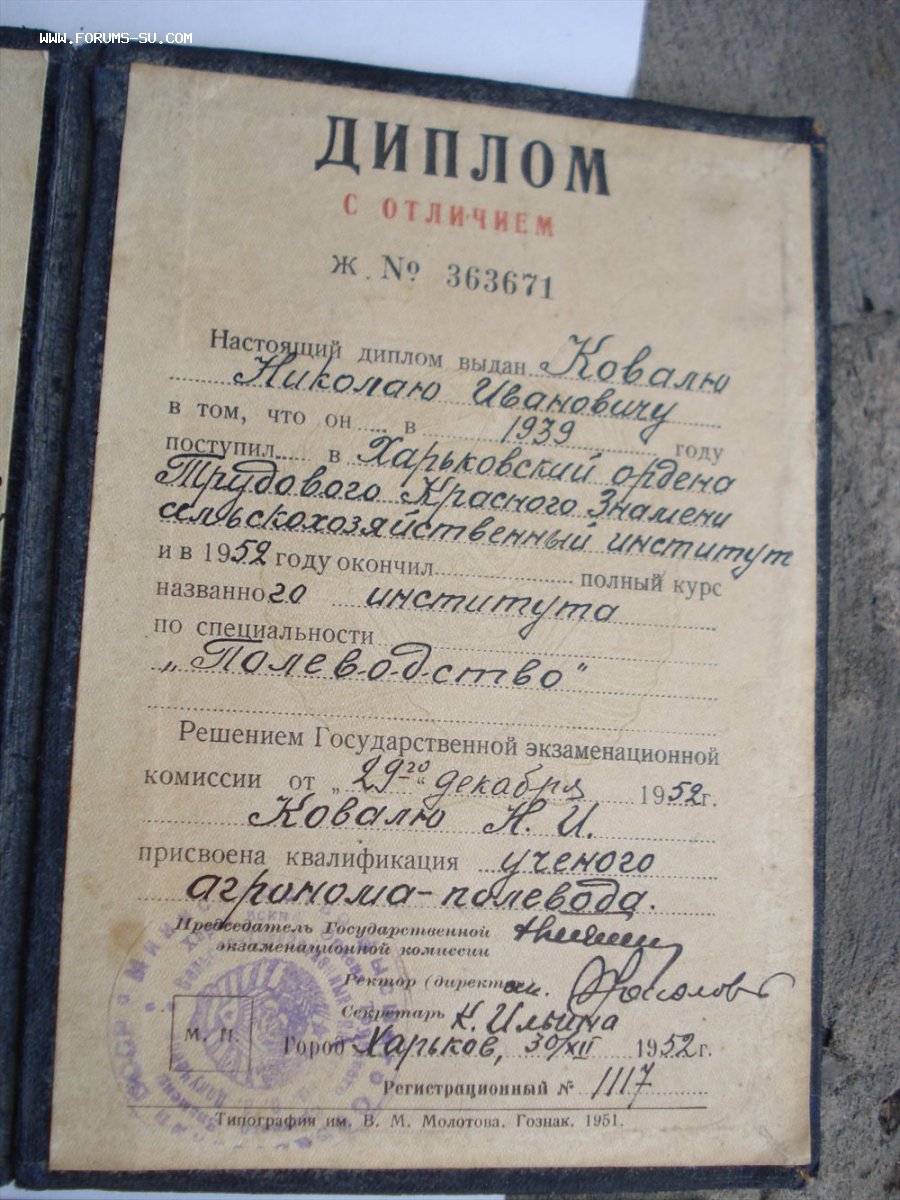 WWW.FORUMS-SU.COM
ДИПЛОМ
С ОТЛИЧИЕМ
Ж № 363671
Настоящий диплом выдан Ковалю
Николаю Ивановичу
в том, что он в 1939 году
поступил в Харьковский ордена
Трудового Красного Знамени
сельскохозяйственный институт
и в 1952 году окончил полный курс
названного института
по специальности
„Полеводство“
Решением Государственной экзаменационной
комиссии от „29-го“ декабря 1952 г.
Ковалю Н. И.
присвоена квалификация ученого
агронома-полевода.
Председатель Государственной
экзаменационной комиссии
Ректор (директор)
Секретарь Н. Ильина
М. П.
Город Харьков, 30/XII 1952 г.
Регистрационный № 1117
Типография им. В. М. Молотова. Гознак. 1951.